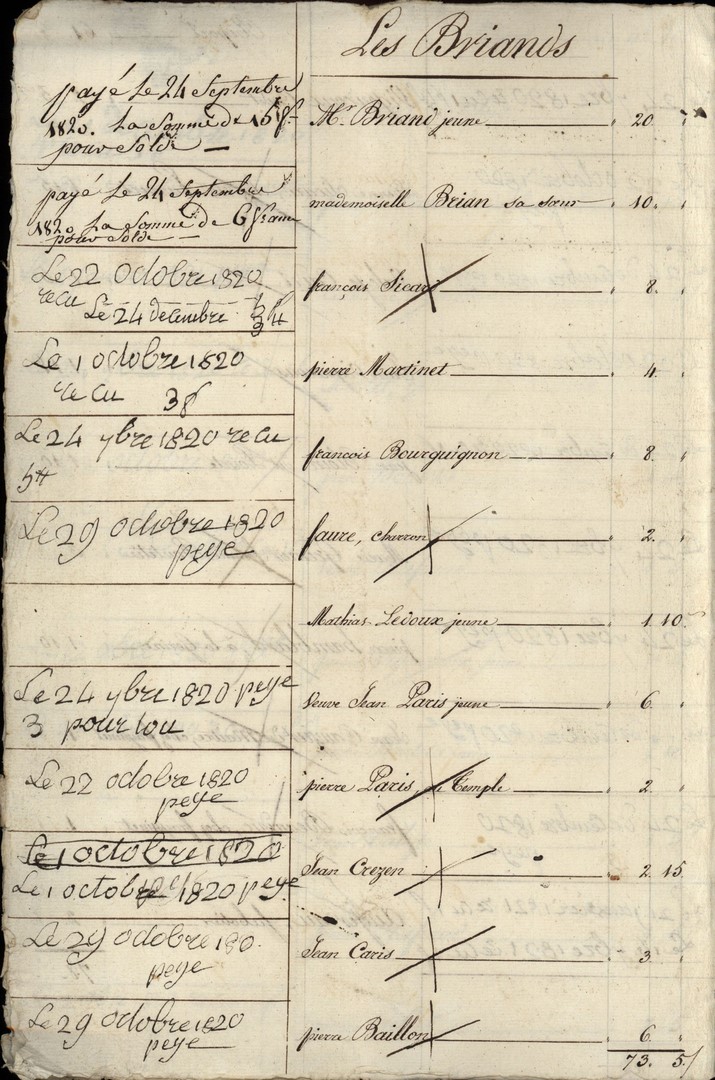 Les Briands
payé Le 24 Septembre
1820. La Somme de 15 f
pour Solde
Mr. Briand jeune 20. "
payé Le 24 Septembre
1820 La Somme de 6 franc
pour Solde
mademoiselle Brian sa sœur 10. "
Le 22 octobre 1820
recu
Le 24 decembre 3tt
françois Sicard 8. "
Le 1 octobre 1820
recu 3f
pierre Martinet 4. "
Le 24 ybre 1820 recu
5tt
francois Bourguignon 8. "
Le 29 octobre 1820
peye
faure, charron 2. "
Mathias Ledoux jeune 1. 10.
Le 24 ybre 1820 peye
3 pour lou
Veuve Jean Paris jeune 6. "
Le 22 octobre 1820
peye
pierre Paris, Le Temple 2. "
Le 1 octobre 1820
Le 1 octobre 1820 peye
Jean Crezen 2. 15.
Le 29 octobre 180.
peye
Jean Caris 3. "
Le 29 octobre 1820
peye
pierre Baillon 6. "
73. 5.